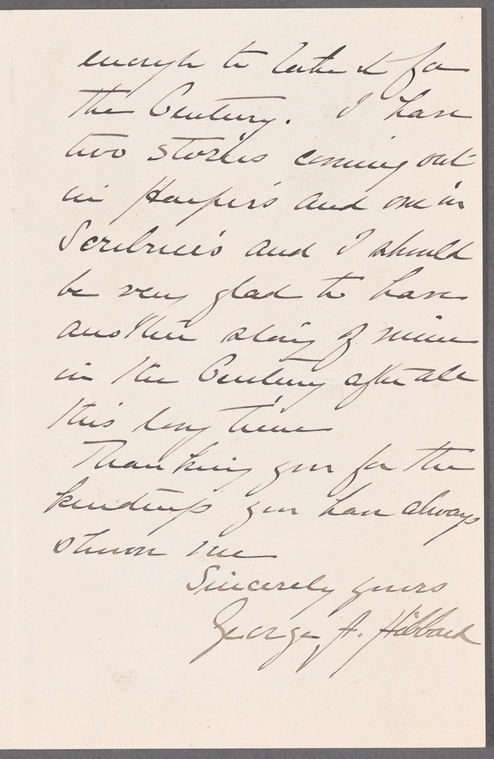 enough to take it for
the Century. I have
two stories coming out
in Harper's and one in
Scribner's and I should
be very glad to have
another story of mine
in the Century after all
this long time
Thanking you for the
kindness you have always
shown me
Sincerely yours
George A. Hibbard